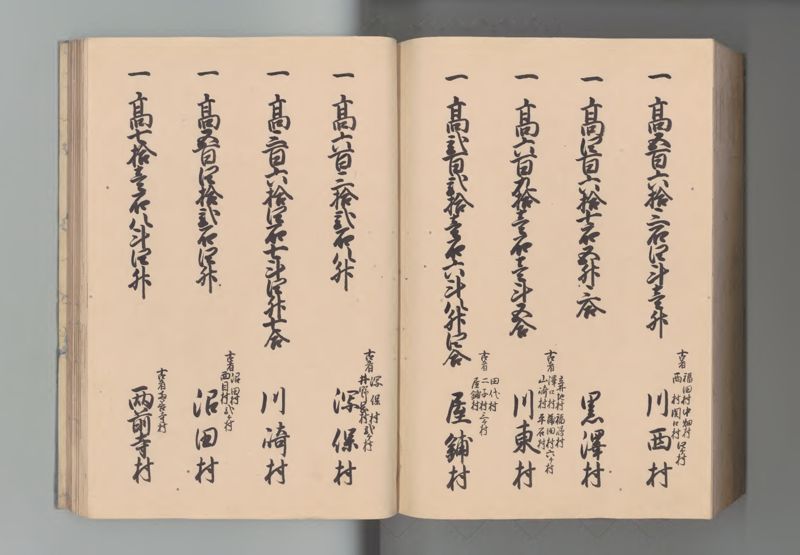 一 高五百六拾三石四斗壱升
古者 福田村 中畑村
西村 関口村 四ヶ村
川西村
一 高四百六拾七石五升六合
黒澤村
一 高六百九拾壱石壱斗五合
古者 澤口村 福田村 六ヶ村
山崎村 平石村
川東村
一 高弐百弐拾壱石六斗八升四合
古者 田代村
二子村 三ヶ村
屋鋪村
屋鋪村
一 高六百三拾弐石八升
古者 深保村 弐ヶ村
深保村
一 高三百六拾四石七斗四升七合
川崎村
一 高五百四拾弐石四升
古者 沼田村
西目村 弐ヶ村
沼田村
一 高七拾壱石八斗四升
古者
両前寺村